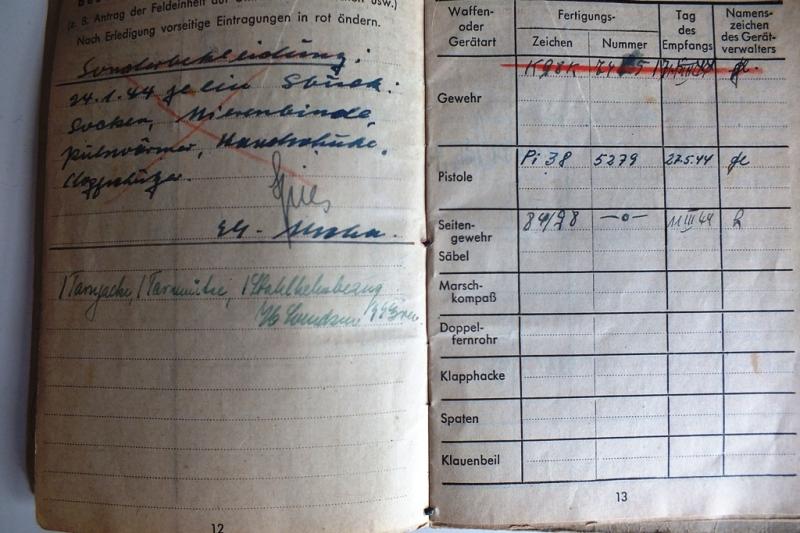 (z. B. Antrag der Feldeinheit auf
Nach Erledigung vorseitige Eintragungen in rot ändern.
Sonderbekleidung:
24.1.44 je ein Stück:
Socken, Nierenbinde,
Pulswärmer, Handschuhe,
Kopfschützer.
1 Tarnjacke, 1 Tarnmütze, 1 Stahlhelmbezug
12
Waffen- oder Gerätart
Fertigungs-
Zeichen
Nummer
Tag des Empfangs
Namens- zeichen des Gerät- verwalters
Gewehr
K98K
Pistole Pi 38 5279 27.5.44
Seiten- gewehr 84/98 —o— 11 III 44
Säbel
Marsch- kompaß
Doppel- fernrohr
Klapphacke
Spaten
Klauenbeil
13